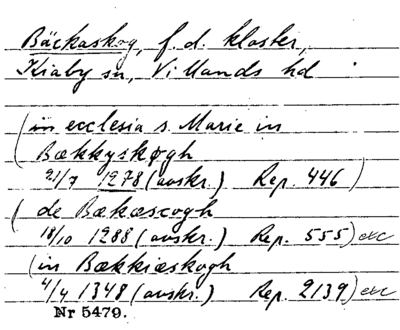 Bäckaskog, f.d. kloster,
Kiaby sn, Villands hd
(in ecclesia s. Marie in
Bækkyskøgh
21/7 1278 (avskr.) Rep. 446)
(de Bækæscogh
18/10 1288 (avskr.) Rep. 555) etc
(in Bækkiæskogh
4/4 1348 (avskr.) Rep. 2139) etc
Nr 5479.